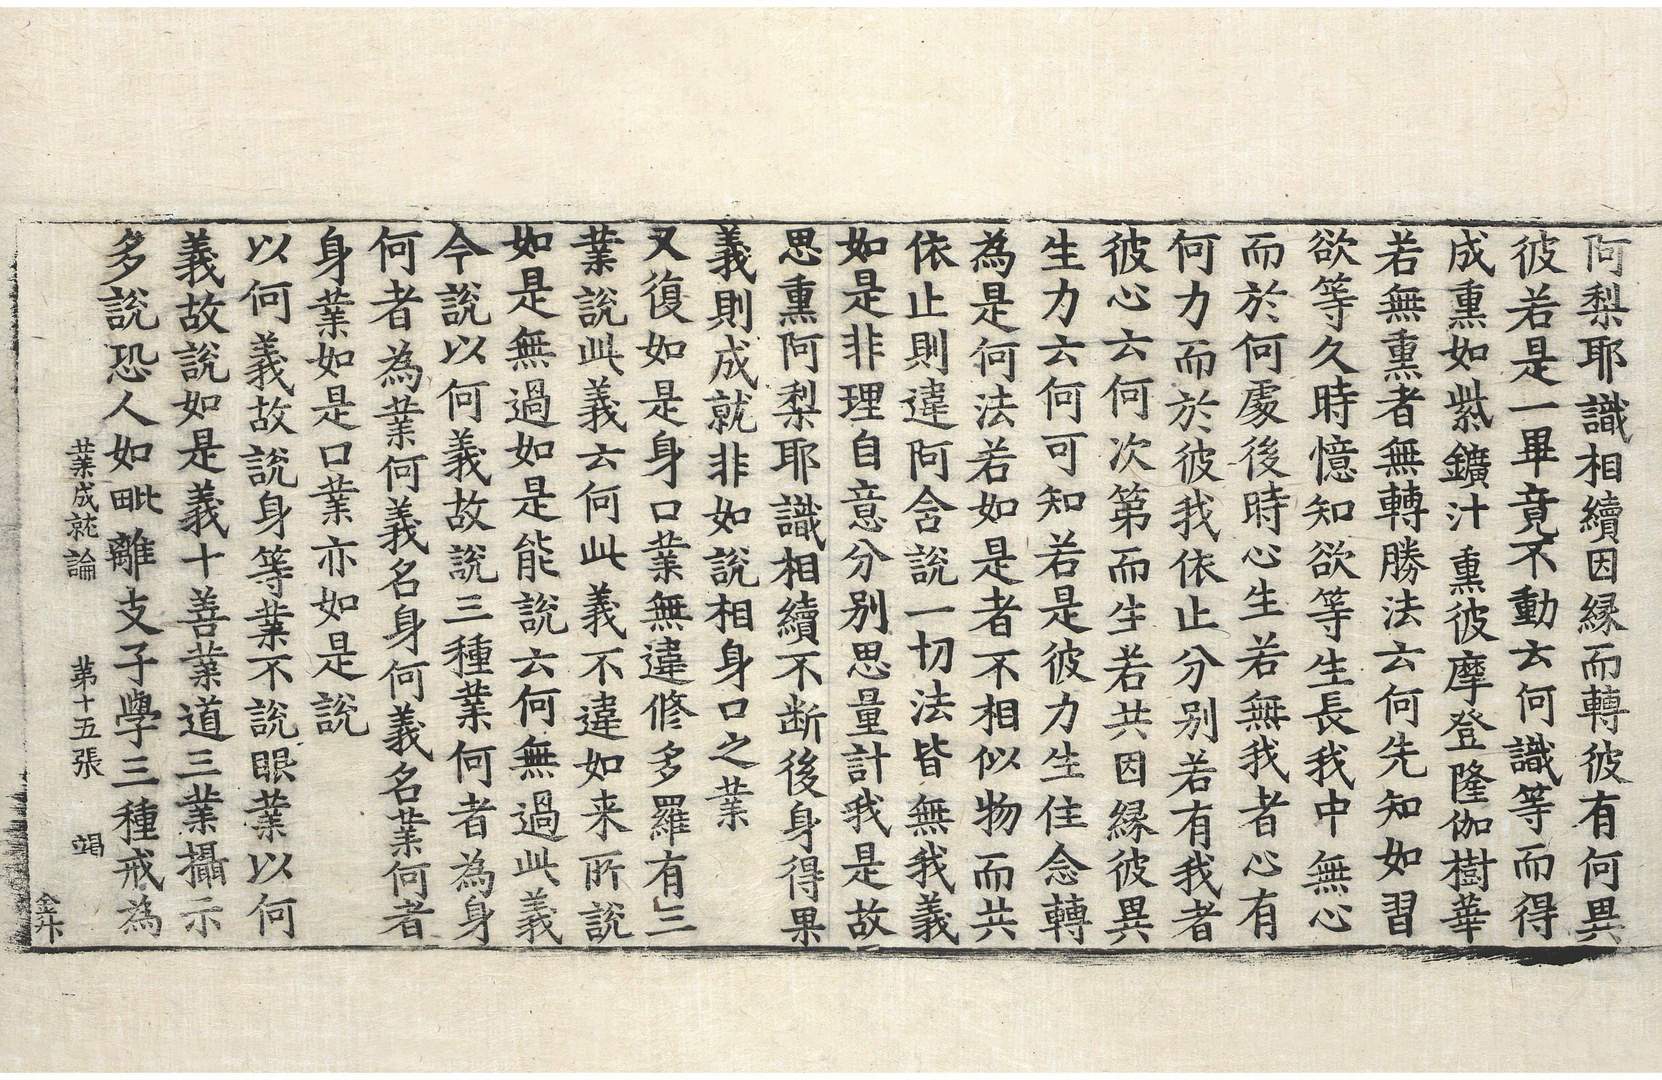 阿梨耶識相續因縁而轉彼有何異
彼若是一畢竟不動云何識等而得
成熏如紫鑛汁熏彼摩登隆伽樹華
若無熏者無轉勝法云何先知如習
欲等久時憶知欲等生長我中無心
而於何處後時心生若無我者心有
何力而於彼我依止分別若有我者
彼心云何次第而生若共因縁彼異
生力云何可知若是彼力生住念轉
為是何法若如是者不相似物而共
依止則違阿含說一切法皆無我義
如是非理自意分別思量計我是故
思熏阿梨耶識相續不断後身得果
義則成就非如說相身口之業
又復如是身口業無違修多羅有三
業說此義云何此義不違如来所說
如是無過如是能說云何無過此義
今說以何義故說三種業何者為身
何者為業何義名身何義名業何者
身業如是口業亦如是說
以何義故說身等業不說眼業以何
義故說如是義十善業道三業攝示
多說恐人如毗離支子學三種戒為
業成就論　第十五張　竭
金升